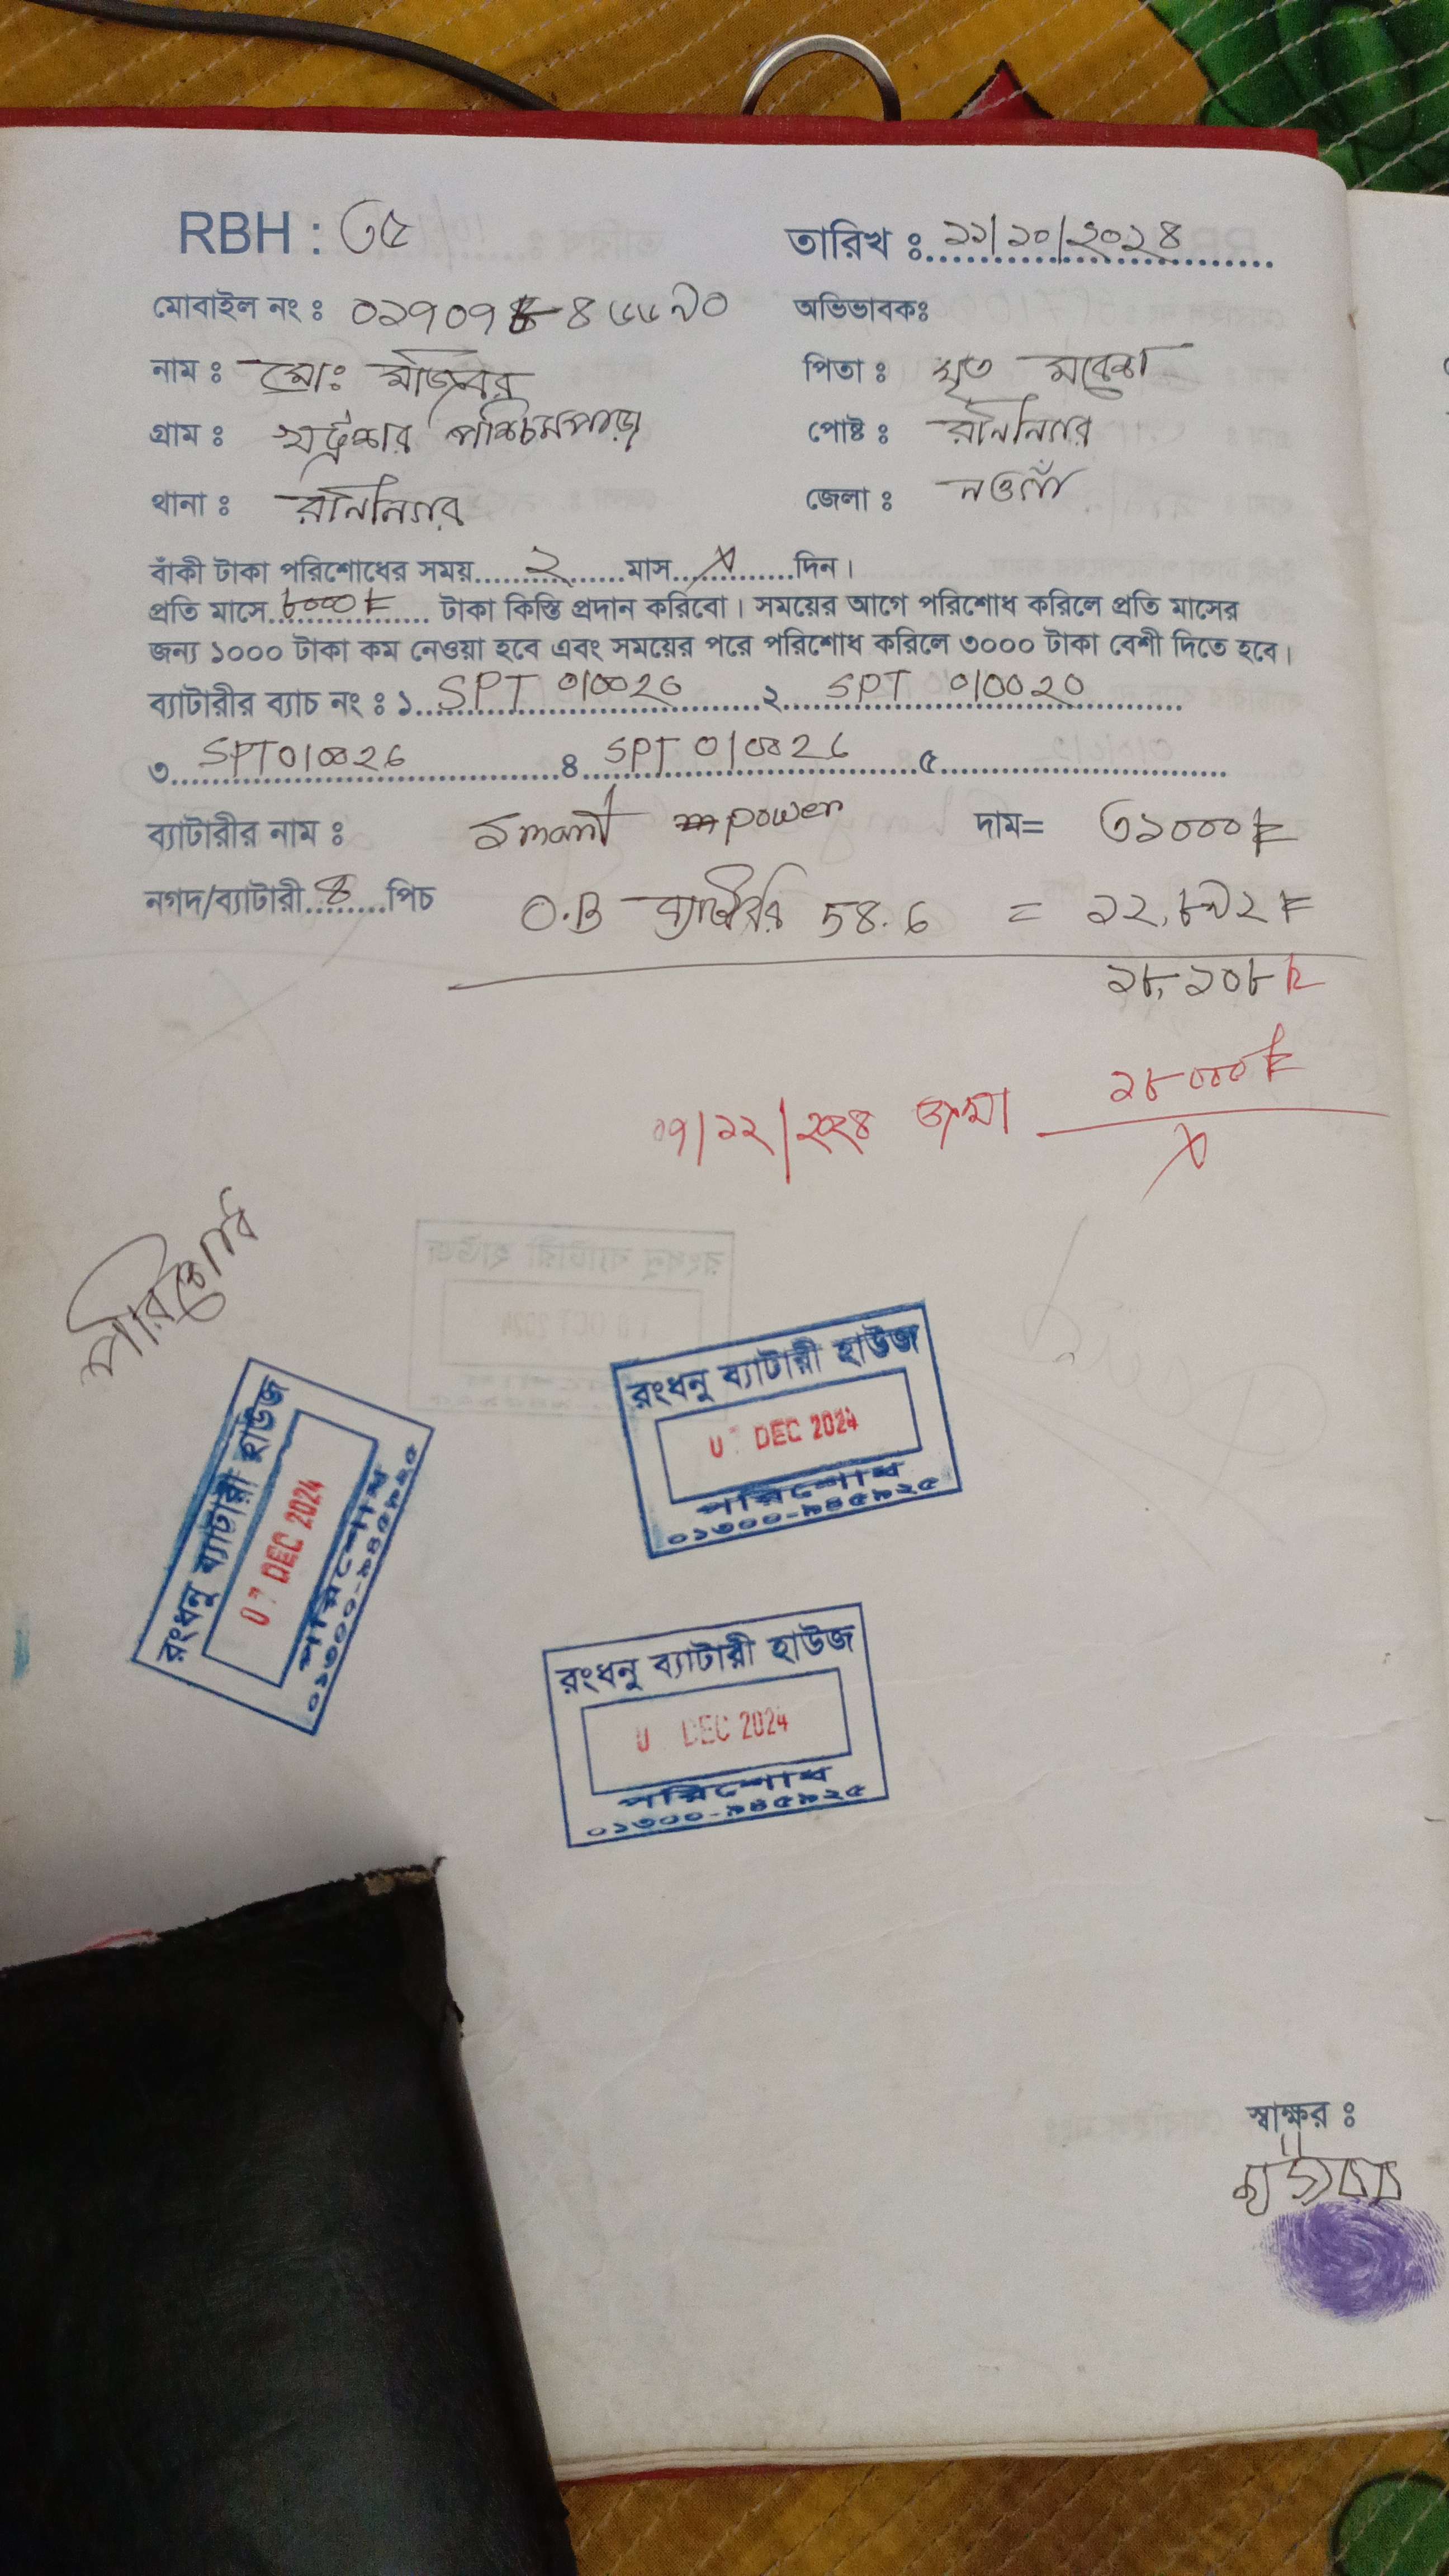 RBH : ৩৫
তারিখ ঃ ২২/১০/২০২৪
মোবাইল নং ঃ
অভিভাবকঃ
নাম ঃ মোঃ
পিতা ঃ মৃত
গ্রাম ঃ পশ্চিমপাড়া
পোষ্ট ঃ রানীনগর
থানা ঃ রানীনগর
জেলা ঃ নওগাঁ
বাঁকী টাকা পরিশোধের সময়......২......মাস..x......দিন।
প্রতি মাসে ৮০০০ টাকা কিস্তি প্রদান করিবো। সময়ের আগে পরিশোধ করিলে প্রতি মাসের
জন্য ১০০০ টাকা কম নেওয়া হবে এবং সময়ের পরে পরিশোধ করিলে ৩০০০ টাকা বেশী দিতে হবে।
ব্যাটারীর ব্যাচ নং ঃ ১. SPT 010026 ২. SPT 010020
৩. SPT010026 ৪. SPT 010026 ৫.
ব্যাটারীর নাম ঃ Smart power দাম= ৩১০০০৳
নগদ/ব্যাটারী..৪..পিচ O.B ব্যাটারি 58.6 = ১২,৮৯২৳
১৮,১০৮৳
১৮০০০৳
০৭/১২/২০২৪ জমা
x
পরিশোধ
রংধনু ব্যাটারী হাউজ
0 DEC 2024
পরিশোধ
০১৩০০-৯৪৫৯২৫
রংধনু ব্যাটারী হাউজ
07 DEC 2024
পরিশোধ
০১৩০০-৯৪৫৯২৫
রংধনু ব্যাটারী হাউজ
0 DEC 2024
পরিশোধ
০১৩০০-৯৪৫৯২৫
স্বাক্ষর ঃ